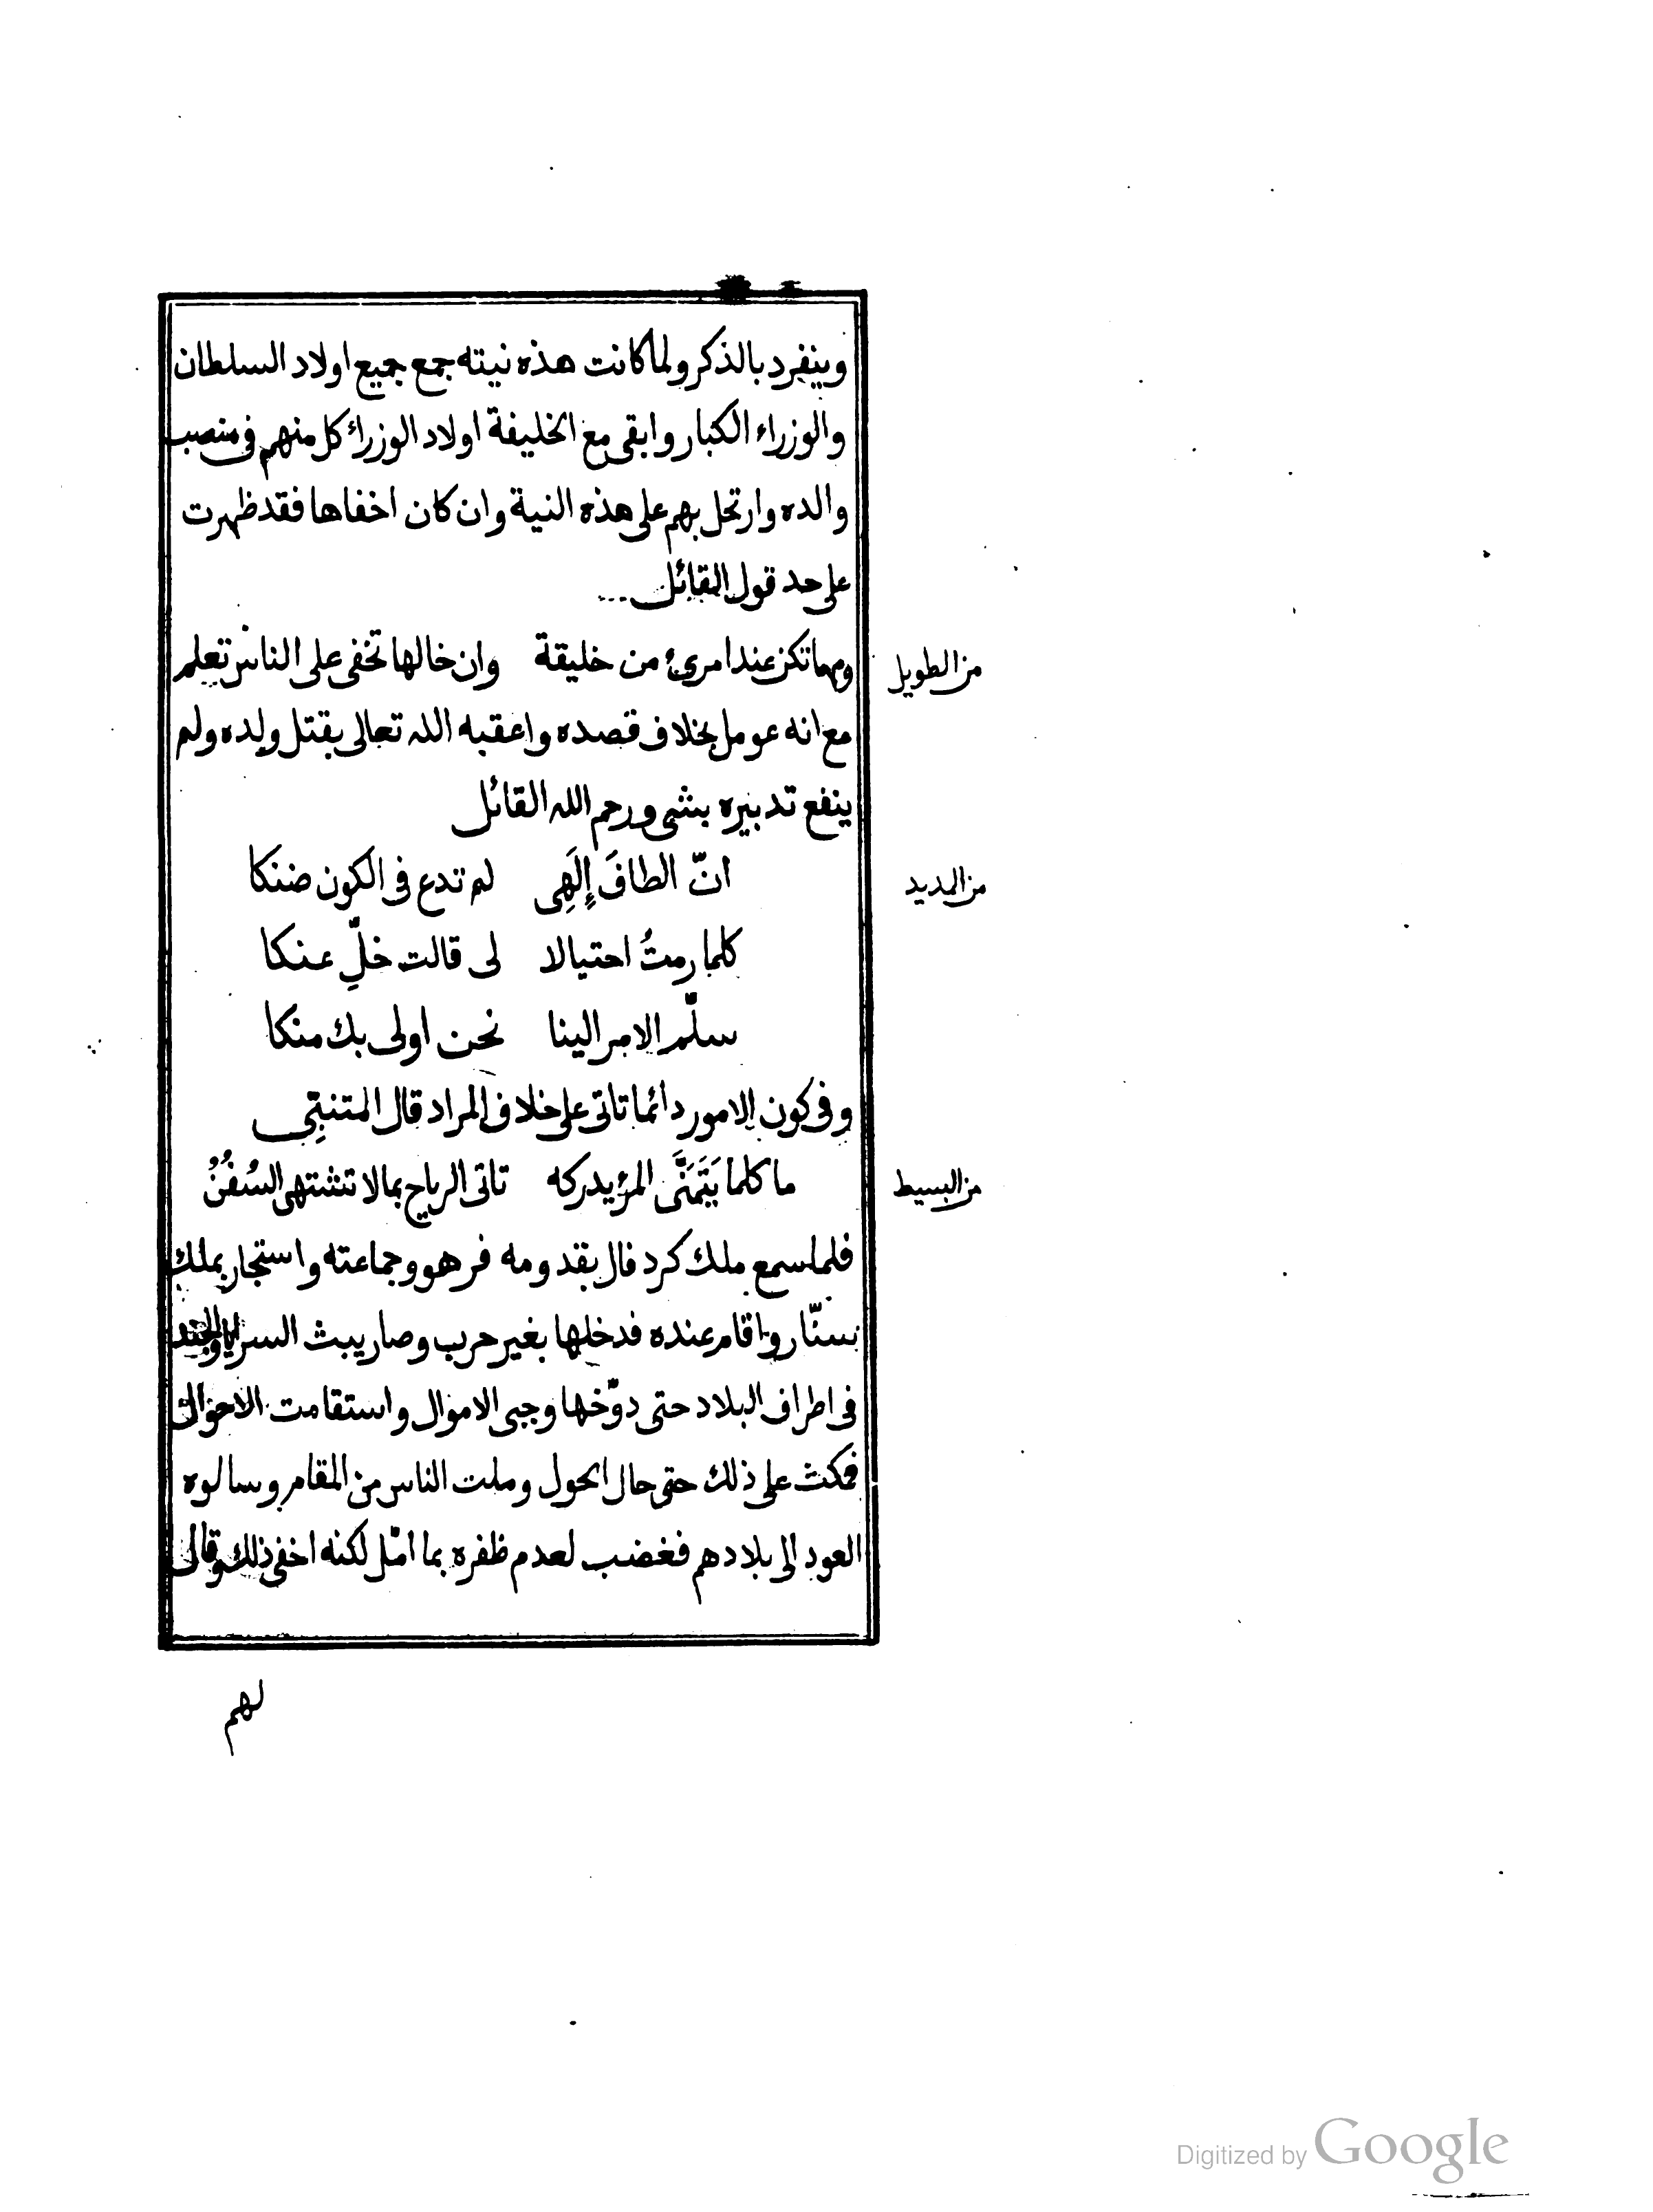 وينفرد بالذكر ولما كانت هذه نيته جمع جميع اولاد السلطان
والوزراء الكبار وابقى مع الخليفة اولاد الوزراء كل منهم فى منصب
والده وارتحل بهم على هذه النية وان كان اخفاها فقد ظهرت
على حد قول القائل ...
ومهما تكن عند امرئ من خليقة وان خالها تخفى على الناس تعلم
من الطويل
مع انه عومل بخلاف قصده واعقبه الله تعالى بقتل ولده ولم
ينفع تدبيره بشى ورحم الله القائل
انّ الطافَ إِلَهِى لم تدع فى الكون ضنكا
من المديد
كلما رمتُ احتيالا لى قالت خلِّ عنكا
سلّم الامر الينا نحن اولى بك منكا
وفى كون الامور دائما تاتى على خلاف المراد قال المتنبِّى
ما كلما يَتَمَنَّى المرؤ يدركه تاتى الرياح بما لا تشتهى السُفُنُ
من البسيط
فلما سمع ملك كردفال بقدومه فر هو وجماعته واستجار بملك
سنّار واقام عنده فدخلها بغير حرب وصار يبث السرايا والجند
فى اطراف البلاد حتى دوّخها وجبى الاموال واستقامت الاحوال
فمكث على ذلك حتى حال الحول وملت الناس من المقام وسالوه
العود الى بلادهم فغضب لعدم ظفره بما امّل لكنه اخفى ذلك وقال
لهم
Digitized by Google